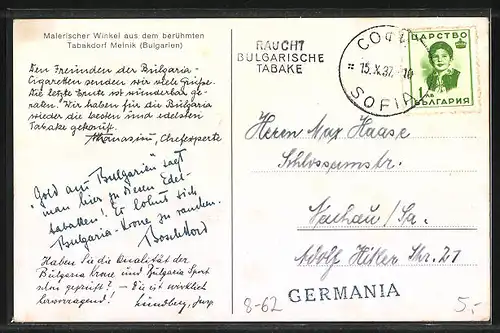 Malerischer Winkel aus dem berühmten
Tabakdorf Melnik (Bulgarien)
Den Freunden der Bulgaria-
Cigaretten senden wir viele Grüße.
Die letzte Ernte ist wunderbar ge-
raten! Wir haben für die Bulgaria
wieder die besten und edelsten
Tabake gekauft.
Athanasiu, Chefexperte
"Gold aus Bulgarien" sagt
man hier zu diesen Edel-
tabaken! Es lohnt sich
Bulgaria-Krone zu rauchen.
Haben Sie die Qualität der
Bulgaria Krone und Bulgaria Sport
schon geprüft? – Sie ist wirklich
hervorragend!
RAUCHT
BULGARISCHE
TABAKE
15.X.37. 10
SOFIA
ЦАРСТВО
БЪЛГАРИЯ
1 ЛВ
Herrn Max Haase
Adolf Hitler Str. 27
GERMANIA
8-62
5,-